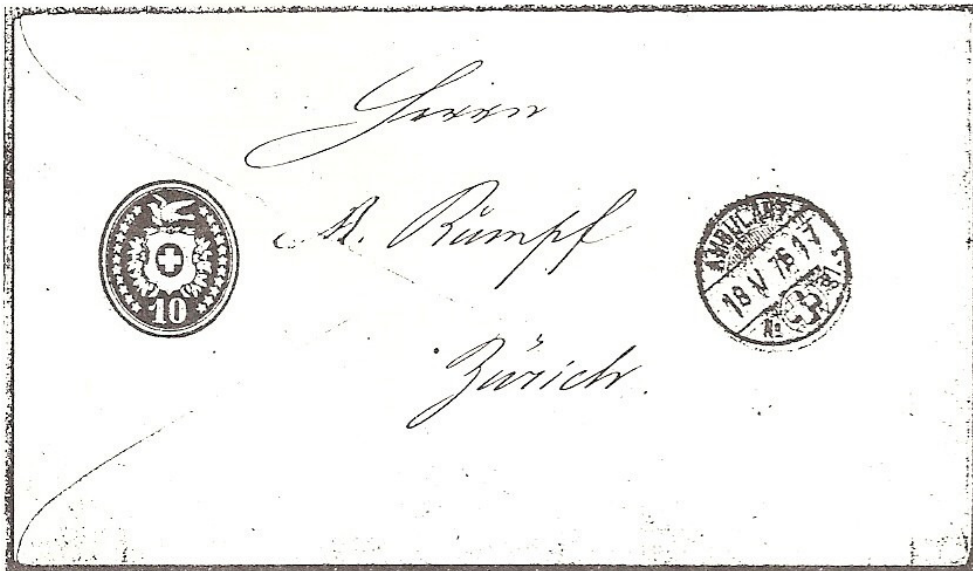 Herrn
A. Rumpf
Zürich.
10
AMBULANT
18 V 76
No